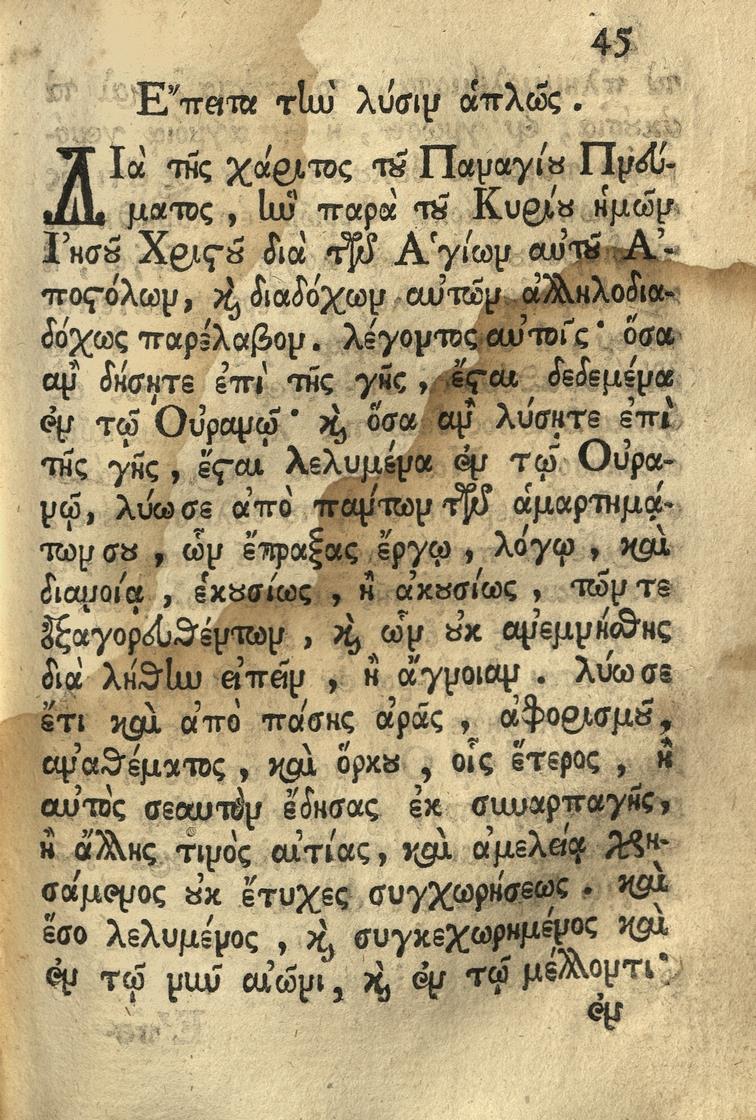 45
Ἔπειτα τὴν λύσιν ἁπλῶς.
ΔΙὰ τῆς χάριτος τοῦ Παναγίου Πνεύ-
ματος, ἣν παρὰ τοῦ Κυρίου ἡμῶν
Ἰησοῦ Χριστοῦ διὰ τῶν Ἁγίων αὐτοῦ Ἀ-
ποστόλων, καὶ διαδόχων αὐτῶν ἀλληλοδια-
δόχως παρέλαβον. λέγοντος αὐτοῖς· ὅσα
ἂν δήσητε ἐπὶ τῆς γῆς, ἔσται δεδεμένα
ἐν τῷ Οὐρανῷ· καὶ ὅσα ἂν λύσητε ἐπὶ
τῆς γῆς, ἔσται λελυμένα ἐν τῷ Οὐρα-
νῷ, λύω σε ἀπὸ πάντων τῶν ἁμαρτημά-
των σου, ὧν ἔπραξας ἔργῳ, λόγῳ, καὶ
διανοίᾳ, ἑκουσίως, ἢ ἀκουσίως, τῶν τε
ἐξαγορευθέντων, καὶ ὧν οὐκ ἀνεμνήσθης
διὰ λήθην εἰπεῖν, ἢ ἄγνοιαν. λύω σε
ἔτι καὶ ἀπὸ πάσης ἀρᾶς, ἀφορισμοῦ,
ἀναθέματος, καὶ ὅρκου, οἷς ἕτερος, ἢ
αὐτὸς σεαυτὸν ἔδησας ἐκ συναρπαγῆς,
ἢ ἄλλης τινὸς αἰτίας, καὶ ἀμελείᾳ χρη-
σάμενος οὐκ ἔτυχες συγχωρήσεως. καὶ
ἔσο λελυμένος, καὶ συγκεχωρημένος καὶ
ἐν τῷ νῦν αἰῶνι, καὶ ἐν τῷ μέλλοντι·
ἐν